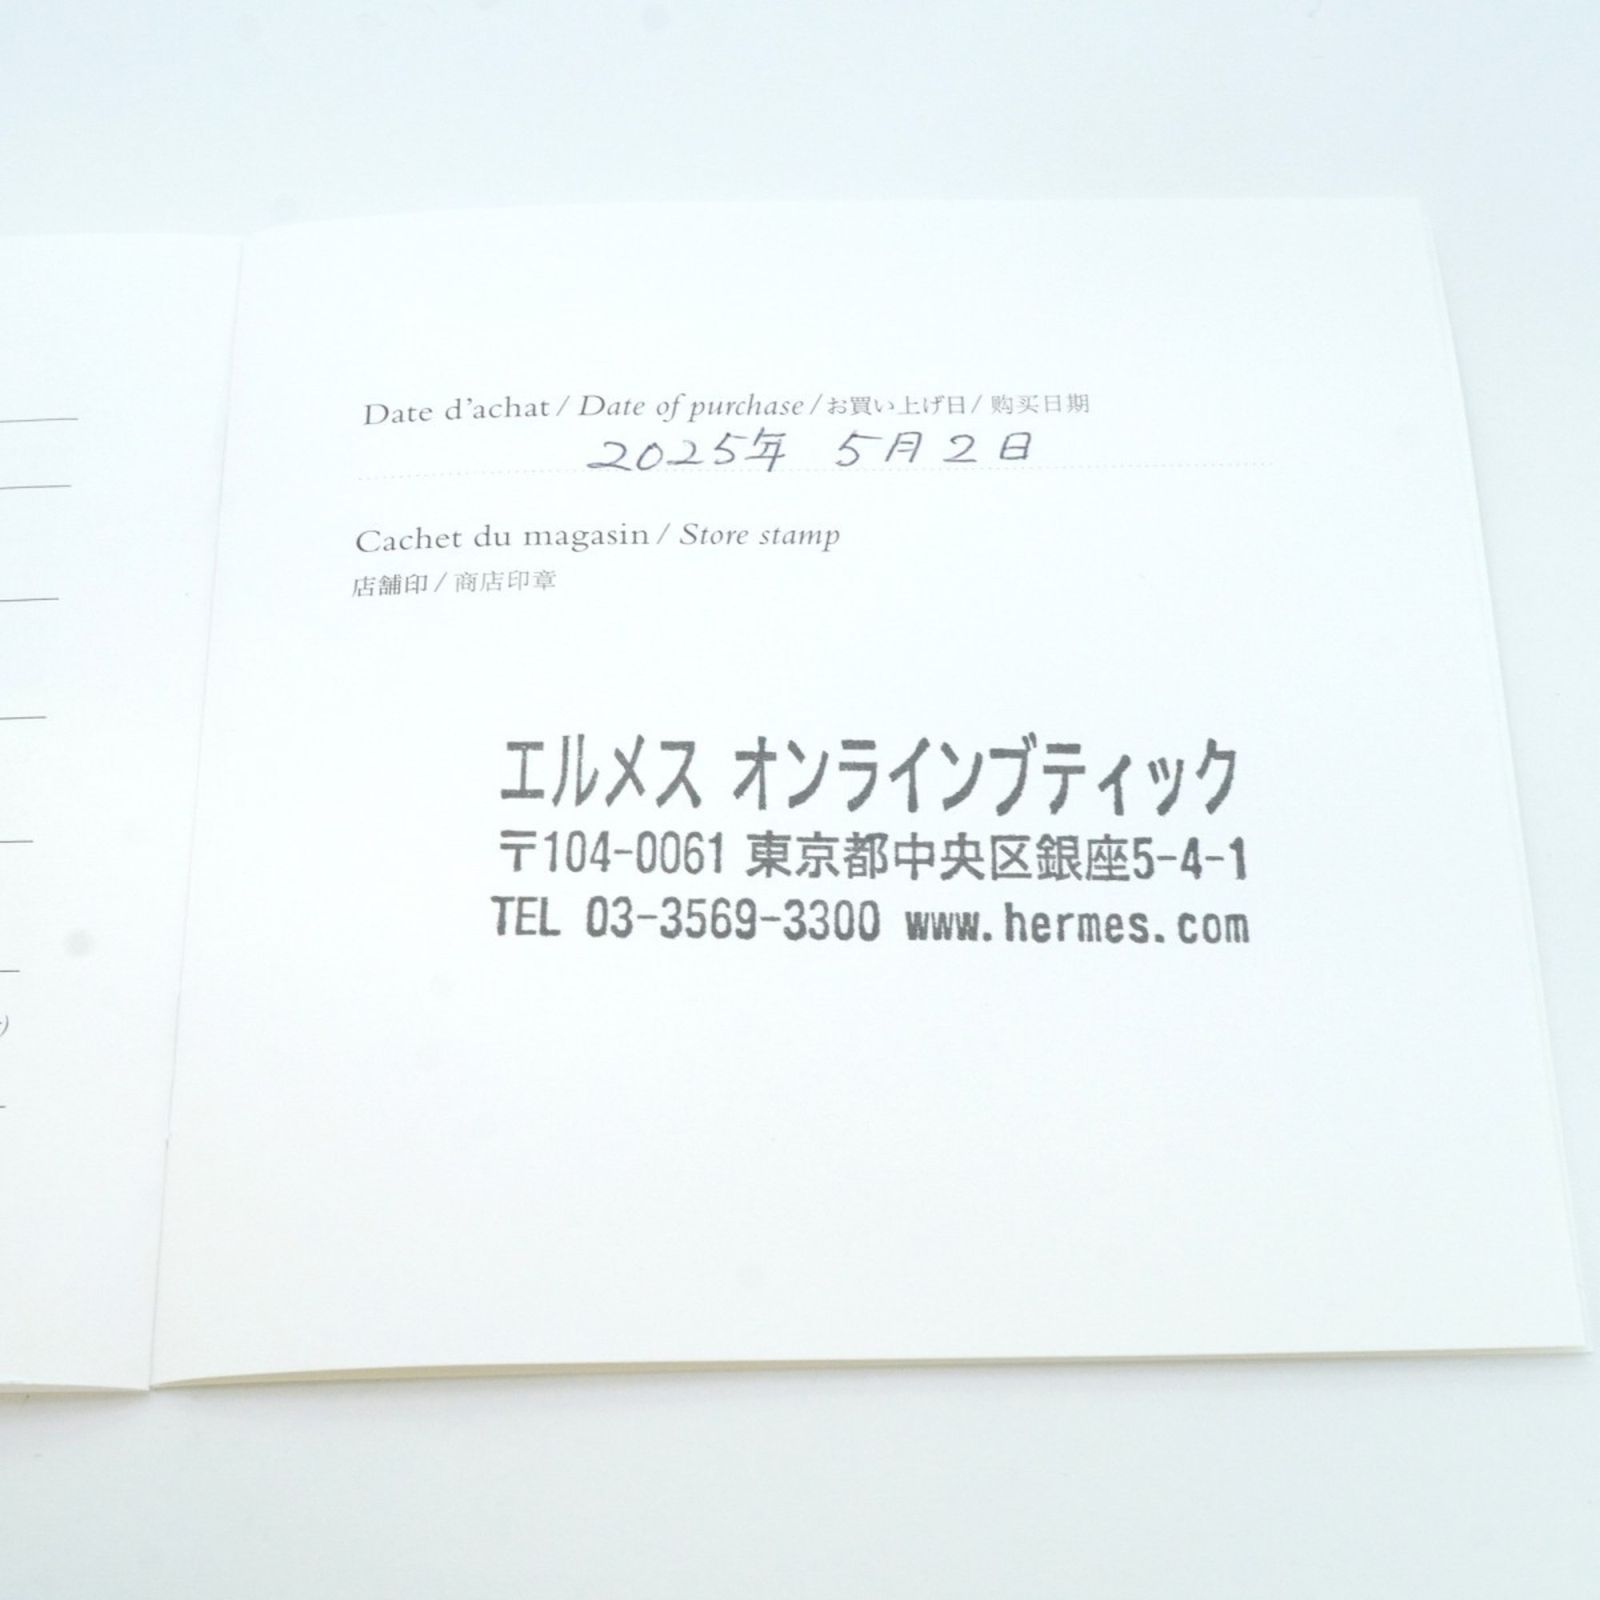 Date d'achat / Date of purchase / お買い上げ日 / 购买日期
2025年 5月2日
Cachet du magasin / Store stamp
店舗印 / 商店印章
エルメス オンラインブティック
〒104-0061 東京都中央区銀座5-4-1
TEL 03-3569-3300 www.hermes.com